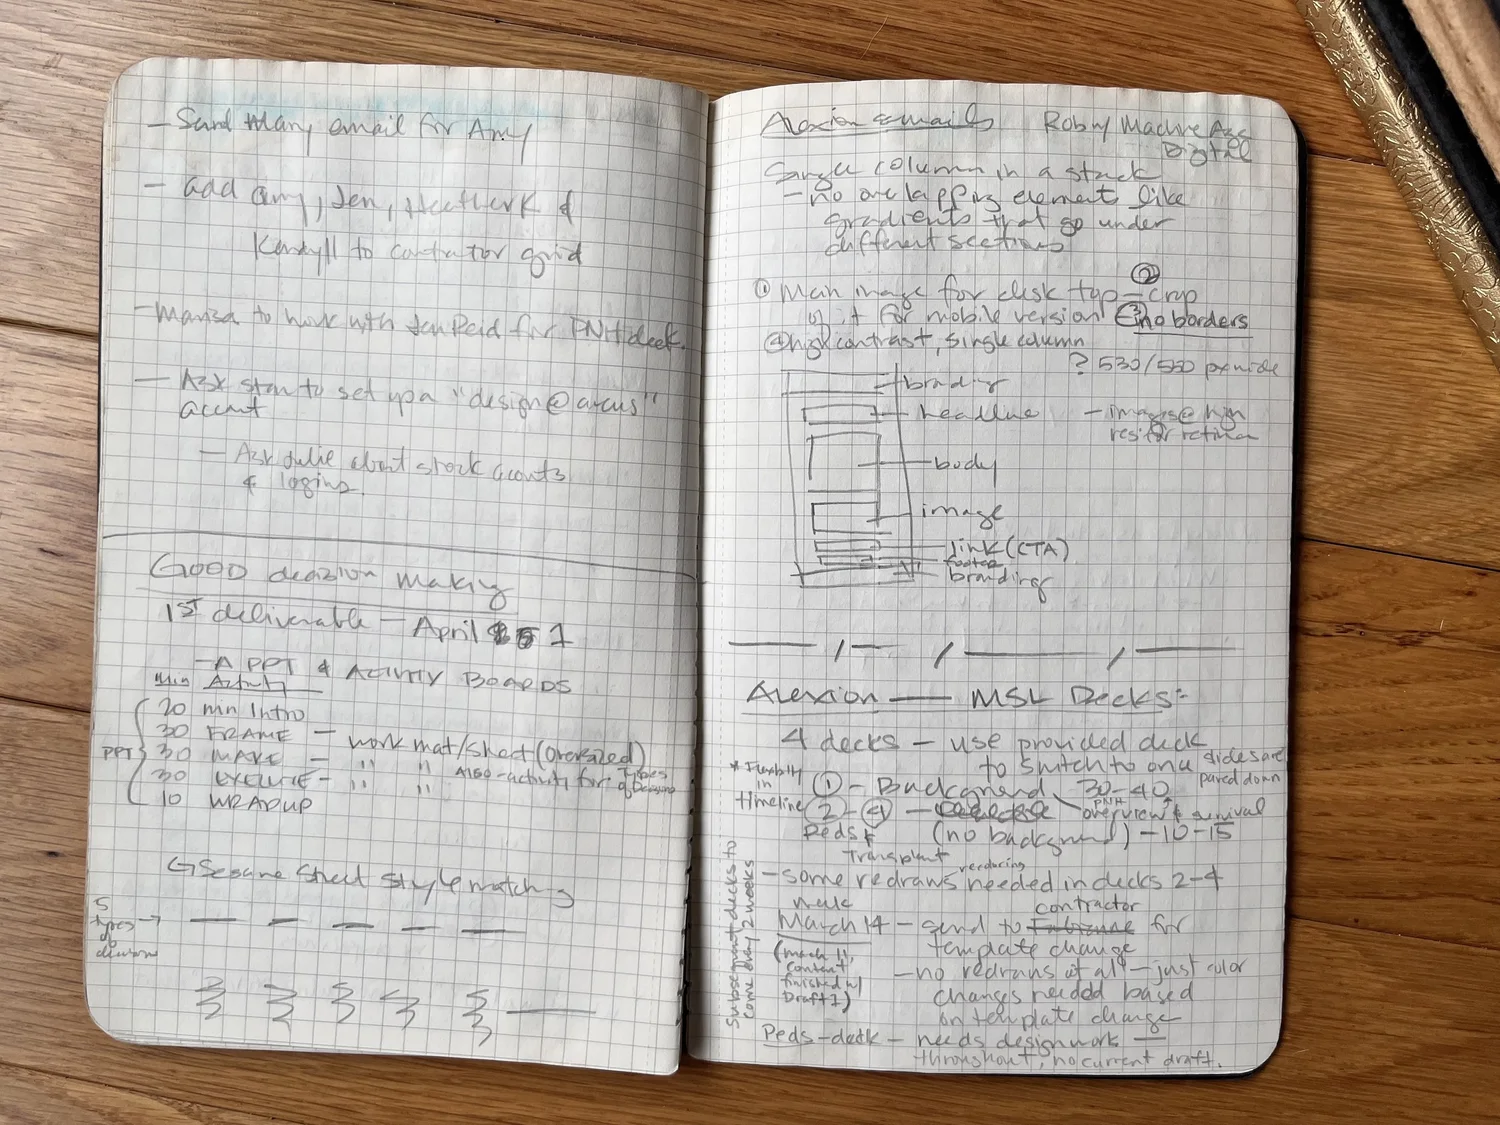 - Send Mary email for Amy
- add Amy, Jen, Heather K &
Kendyll to contractor grid
- Marisa to work with Jen Reid for PNH deck.
- Ask Stan to set up a "design@arcus"
accent
- Ask Julie about stock acounts
& logins.
GOOD decision making
1ST deliverable - April 1
- A PPT & ACTIVITY BOARDS
Min Activity
20 min Intro
30 FRAME - work mat/sheet (oversized)
PPT 30 MAKE - " "
30 EXECUTE - " " Also - activity for types of Decisions
10 WRAPUP
Sesame Street Style matching
5
types →
of
decisions
Alexion emails
Digital
Single column in a stack
- no overlapping elements like
gradients that go under
different sections
① Main image for desk top - ② crop
of it for mobile version ③ no borders
④ high contrast, single column
? 530/550 px wide
branding
headline
- images @ high
res for retina
body
image
link (CTA)
footer
branding
Alexion — MSL Decks:
4 decks - use provided deck
to switch to one
slides are
pared down
* Flexibility
in
timeline
① - Background 30-40
PNH
overview & survival
② - ④
Peds &
Transplant
(no background) - 10-15
- some redraws needed in decks 2-4
week
March 14 - send to contractor for
template change
(March 11,
content
finished w/
Draft 1)
- no redraws at all - just color
changes needed based
on template change
Subsequent decks to
come every 2 weeks
Peds - deck - needs design work -
throughout, no current draft.